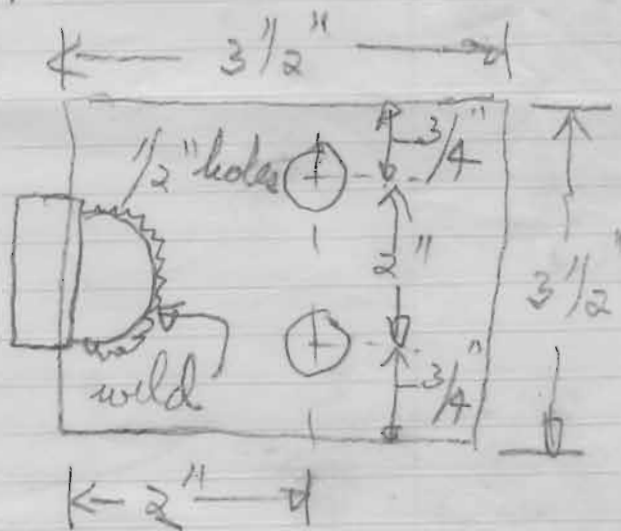 3 1/2"
1/2" holes
3/4"
2"
3 1/2"
3/4"
weld
2"